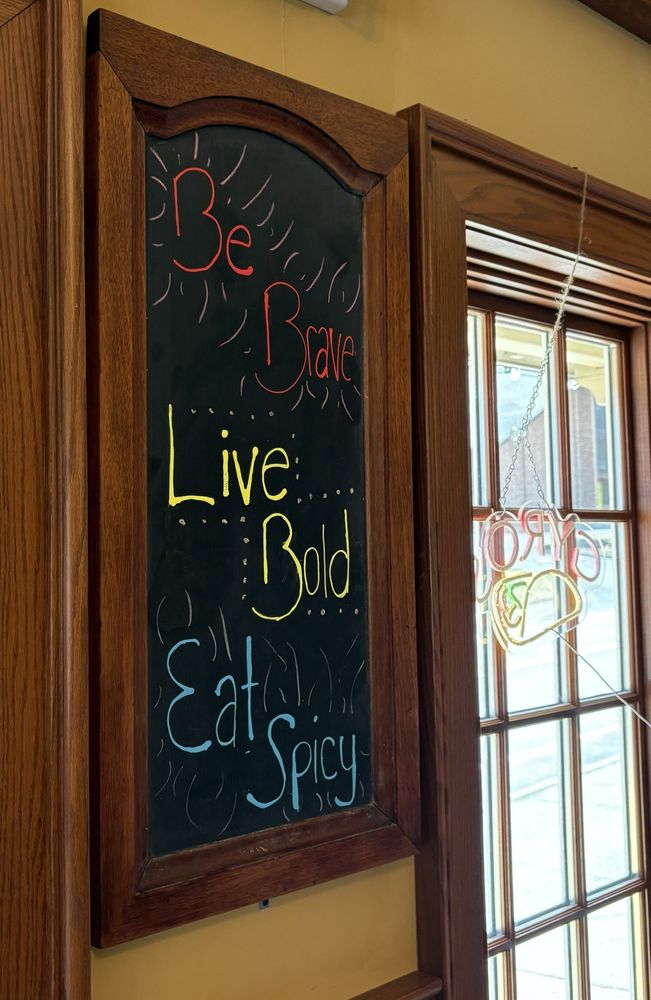 Be
Brave
Live
Bold
Eat
Spicy
GYRO